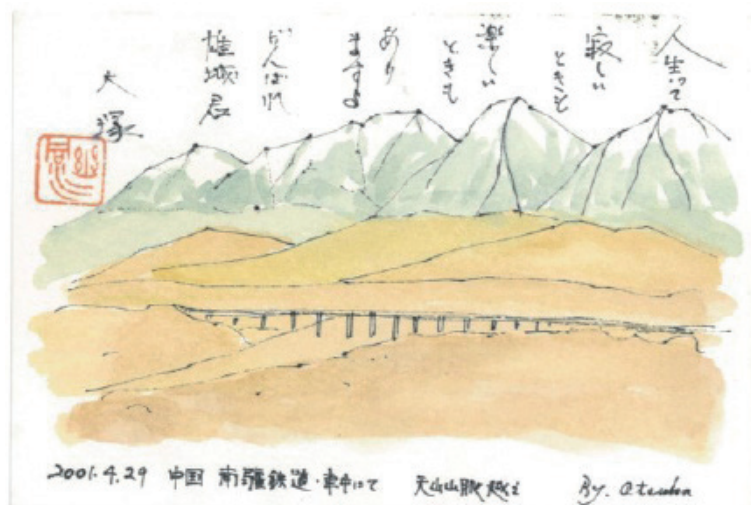 人生って
寂しい
ときも
楽しい
ときも
あり
ますよ
がんばれ
雄城君
大塚
2001.4.29 中国 南疆鉄道・車中にて 天山山脈越え By. Otsuka